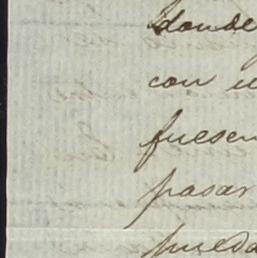 donde
con u
fuesen
pasar
pueda